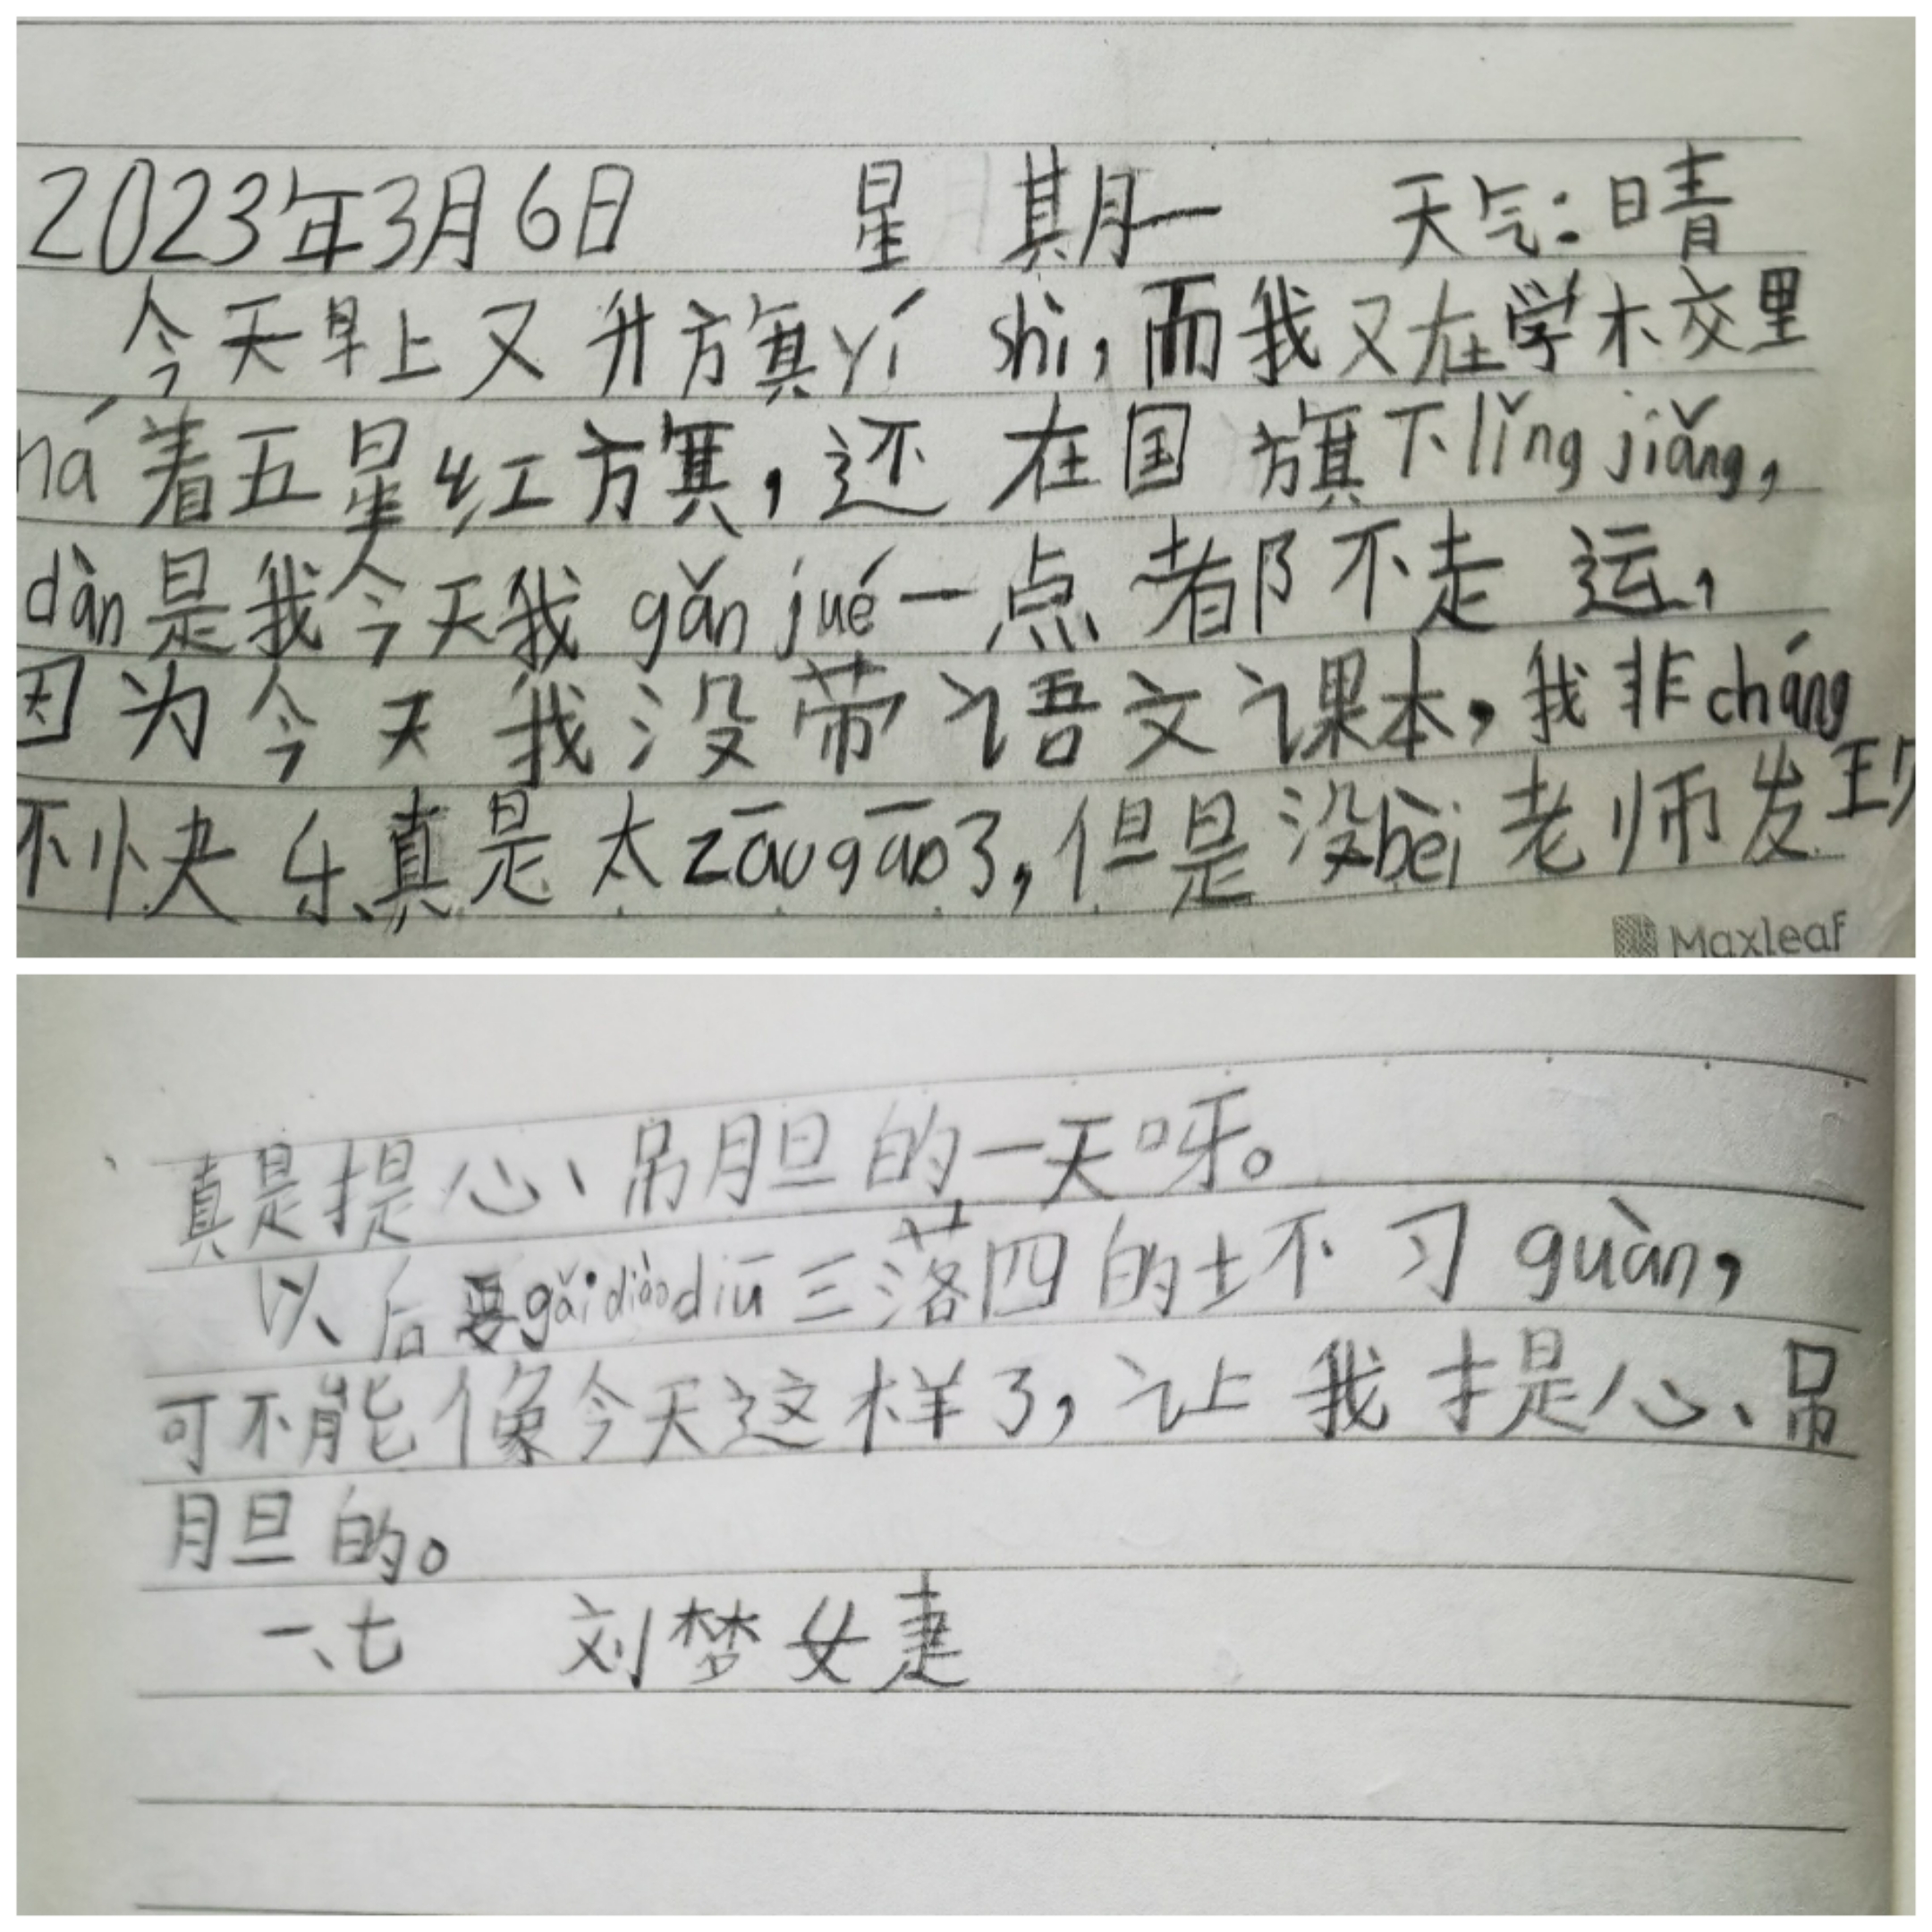 2023年3月6日 星期一 天气:晴
今天早上又升旗yí shì,而我又在学校里
ná着五星红旗,还在国旗下lǐng jiǎng,
dàn是我今天我gǎn jué一点都不走运,
因为今天我没带语文课本,我非cháng
不快乐真是太zāo gāo了,但是没bèi老师发现
Maxleaf
真是提心、吊胆的一天呀。
以后要gǎi diào diū三落四的坏习guàn,
可不能像今天这样了,让我提心、吊
胆的。
一、七 刘梦婕